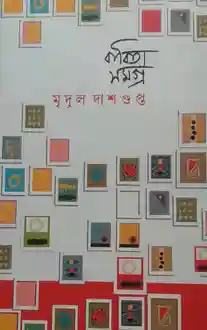 কবিতা
সমগ্র
মৃদুল দাশগুপ্ত